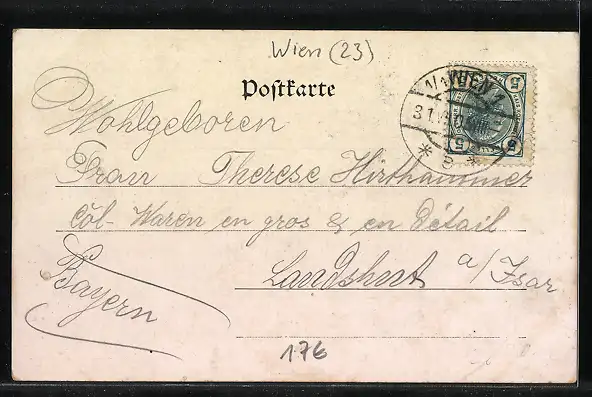 Wien (23)
Postkarte
1/1 WIEN 1
31
* 8 *
5 5
5 5
Wohlgeboren
Frau Therese Hirthammer
Cöl- Waren en gros & en Détail
Landshut a/Isar
Bayern
176